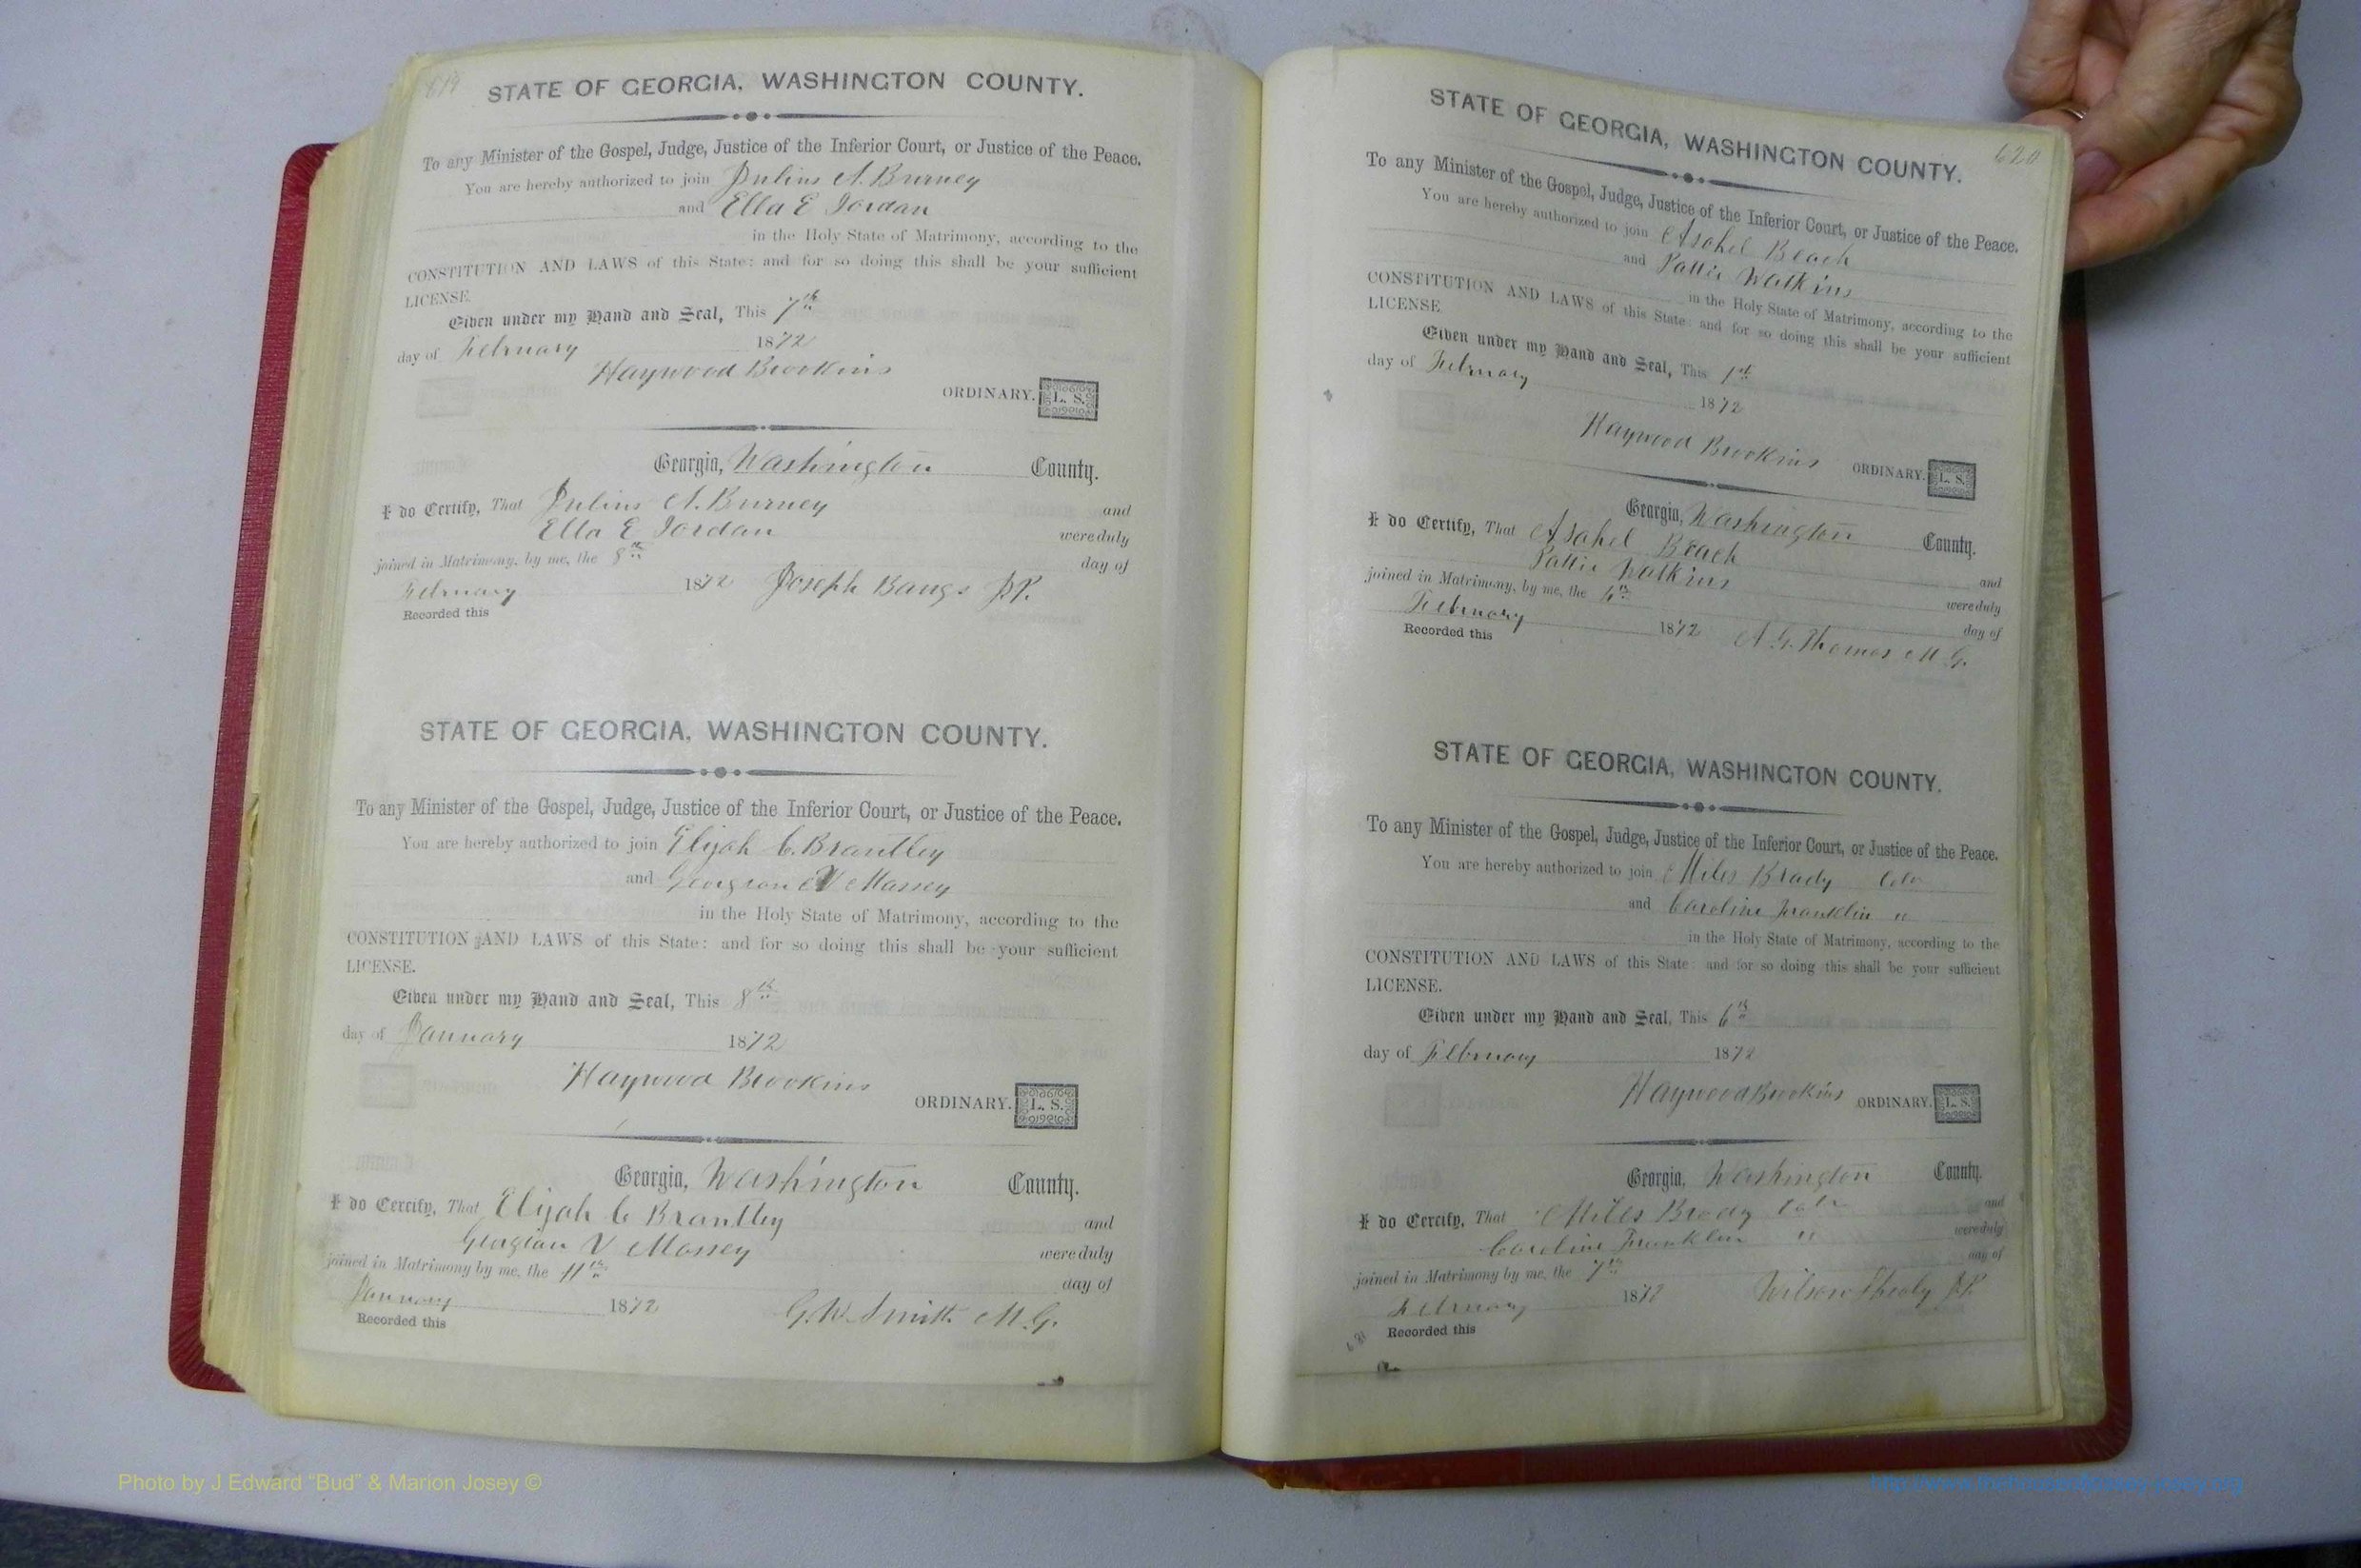 619
STATE OF GEORGIA, WASHINGTON COUNTY.
To any Minister of the Gospel, Judge, Justice of the Inferior Court, or Justice of the Peace.
You are hereby authorized to join Julius A. Burney
and Ella E Jordan
in the Holy State of Matrimony, according to the
CONSTITUTION AND LAWS of this State: and for so doing this shall be your sufficient
LICENSE.
Given under my Hand and Seal, This 7th
day of February 1872
Haywood Brookins
ORDINARY. L. S.
Georgia, Washington County.
I do Certify, That Julius A. Burney and
Ella E Jordan were duly
joined in Matrimony, by me, the 8th day of
February 1872 Joseph Bangs J.P.
Recorded this
STATE OF GEORGIA, WASHINGTON COUNTY.
To any Minister of the Gospel, Judge, Justice of the Inferior Court, or Justice of the Peace.
You are hereby authorized to join Elijah C. Brantley
and Georgian V Massey
in the Holy State of Matrimony, according to the
CONSTITUTION AND LAWS of this State: and for so doing this shall be your sufficient
LICENSE.
Given under my Hand and Seal, This 8th
day of January 1872
Haywood Brookins
ORDINARY. L. S.
Georgia, Washington County.
I do Cercify, That Elijah C Brantley and
Georgian V Massey were duly
joined in Matrimony by me, the 11th day of
January 1872 G. W. Smith M.G.
Recorded this
620
STATE OF GEORGIA, WASHINGTON COUNTY.
To any Minister of the Gospel, Judge, Justice of the Inferior Court, or Justice of the Peace.
You are hereby authorized to join Asahel Beach
and Pattie Watkins
in the Holy State of Matrimony, according to the
CONSTITUTION AND LAWS of this State: and for so doing this shall be your sufficient
LICENSE.
Given under my Hand and Seal, This 1st
day of February 1872
Haywood Brookins ORDINARY. L. S.
Georgia, Washington County.
I do Certify, That Asahel Beach and
Pattie Watkins were duly
joined in Matrimony, by me, the 6th day of
February 1872 A. G. Thomas M.G.
Recorded this
STATE OF GEORGIA, WASHINGTON COUNTY.
To any Minister of the Gospel, Judge, Justice of the Inferior Court, or Justice of the Peace.
You are hereby authorized to join Miles Brady Colr
and Caroline Franklin "
in the Holy State of Matrimony, according to the
CONSTITUTION AND LAWS of this State: and for so doing this shall be your sufficient
LICENSE.
Given under my Hand and Seal, This 6th
day of February 1872
Haywood Brookins ORDINARY. L. S.
Georgia, Washington County.
I do Cercify, That Miles Brady Colr and
Caroline Franklin " were duly
joined in Matrimony by me, the 7th day of
February 1872 Wilson JP
Recorded this
Photo by J Edward "Bud" & Marion Josey ©